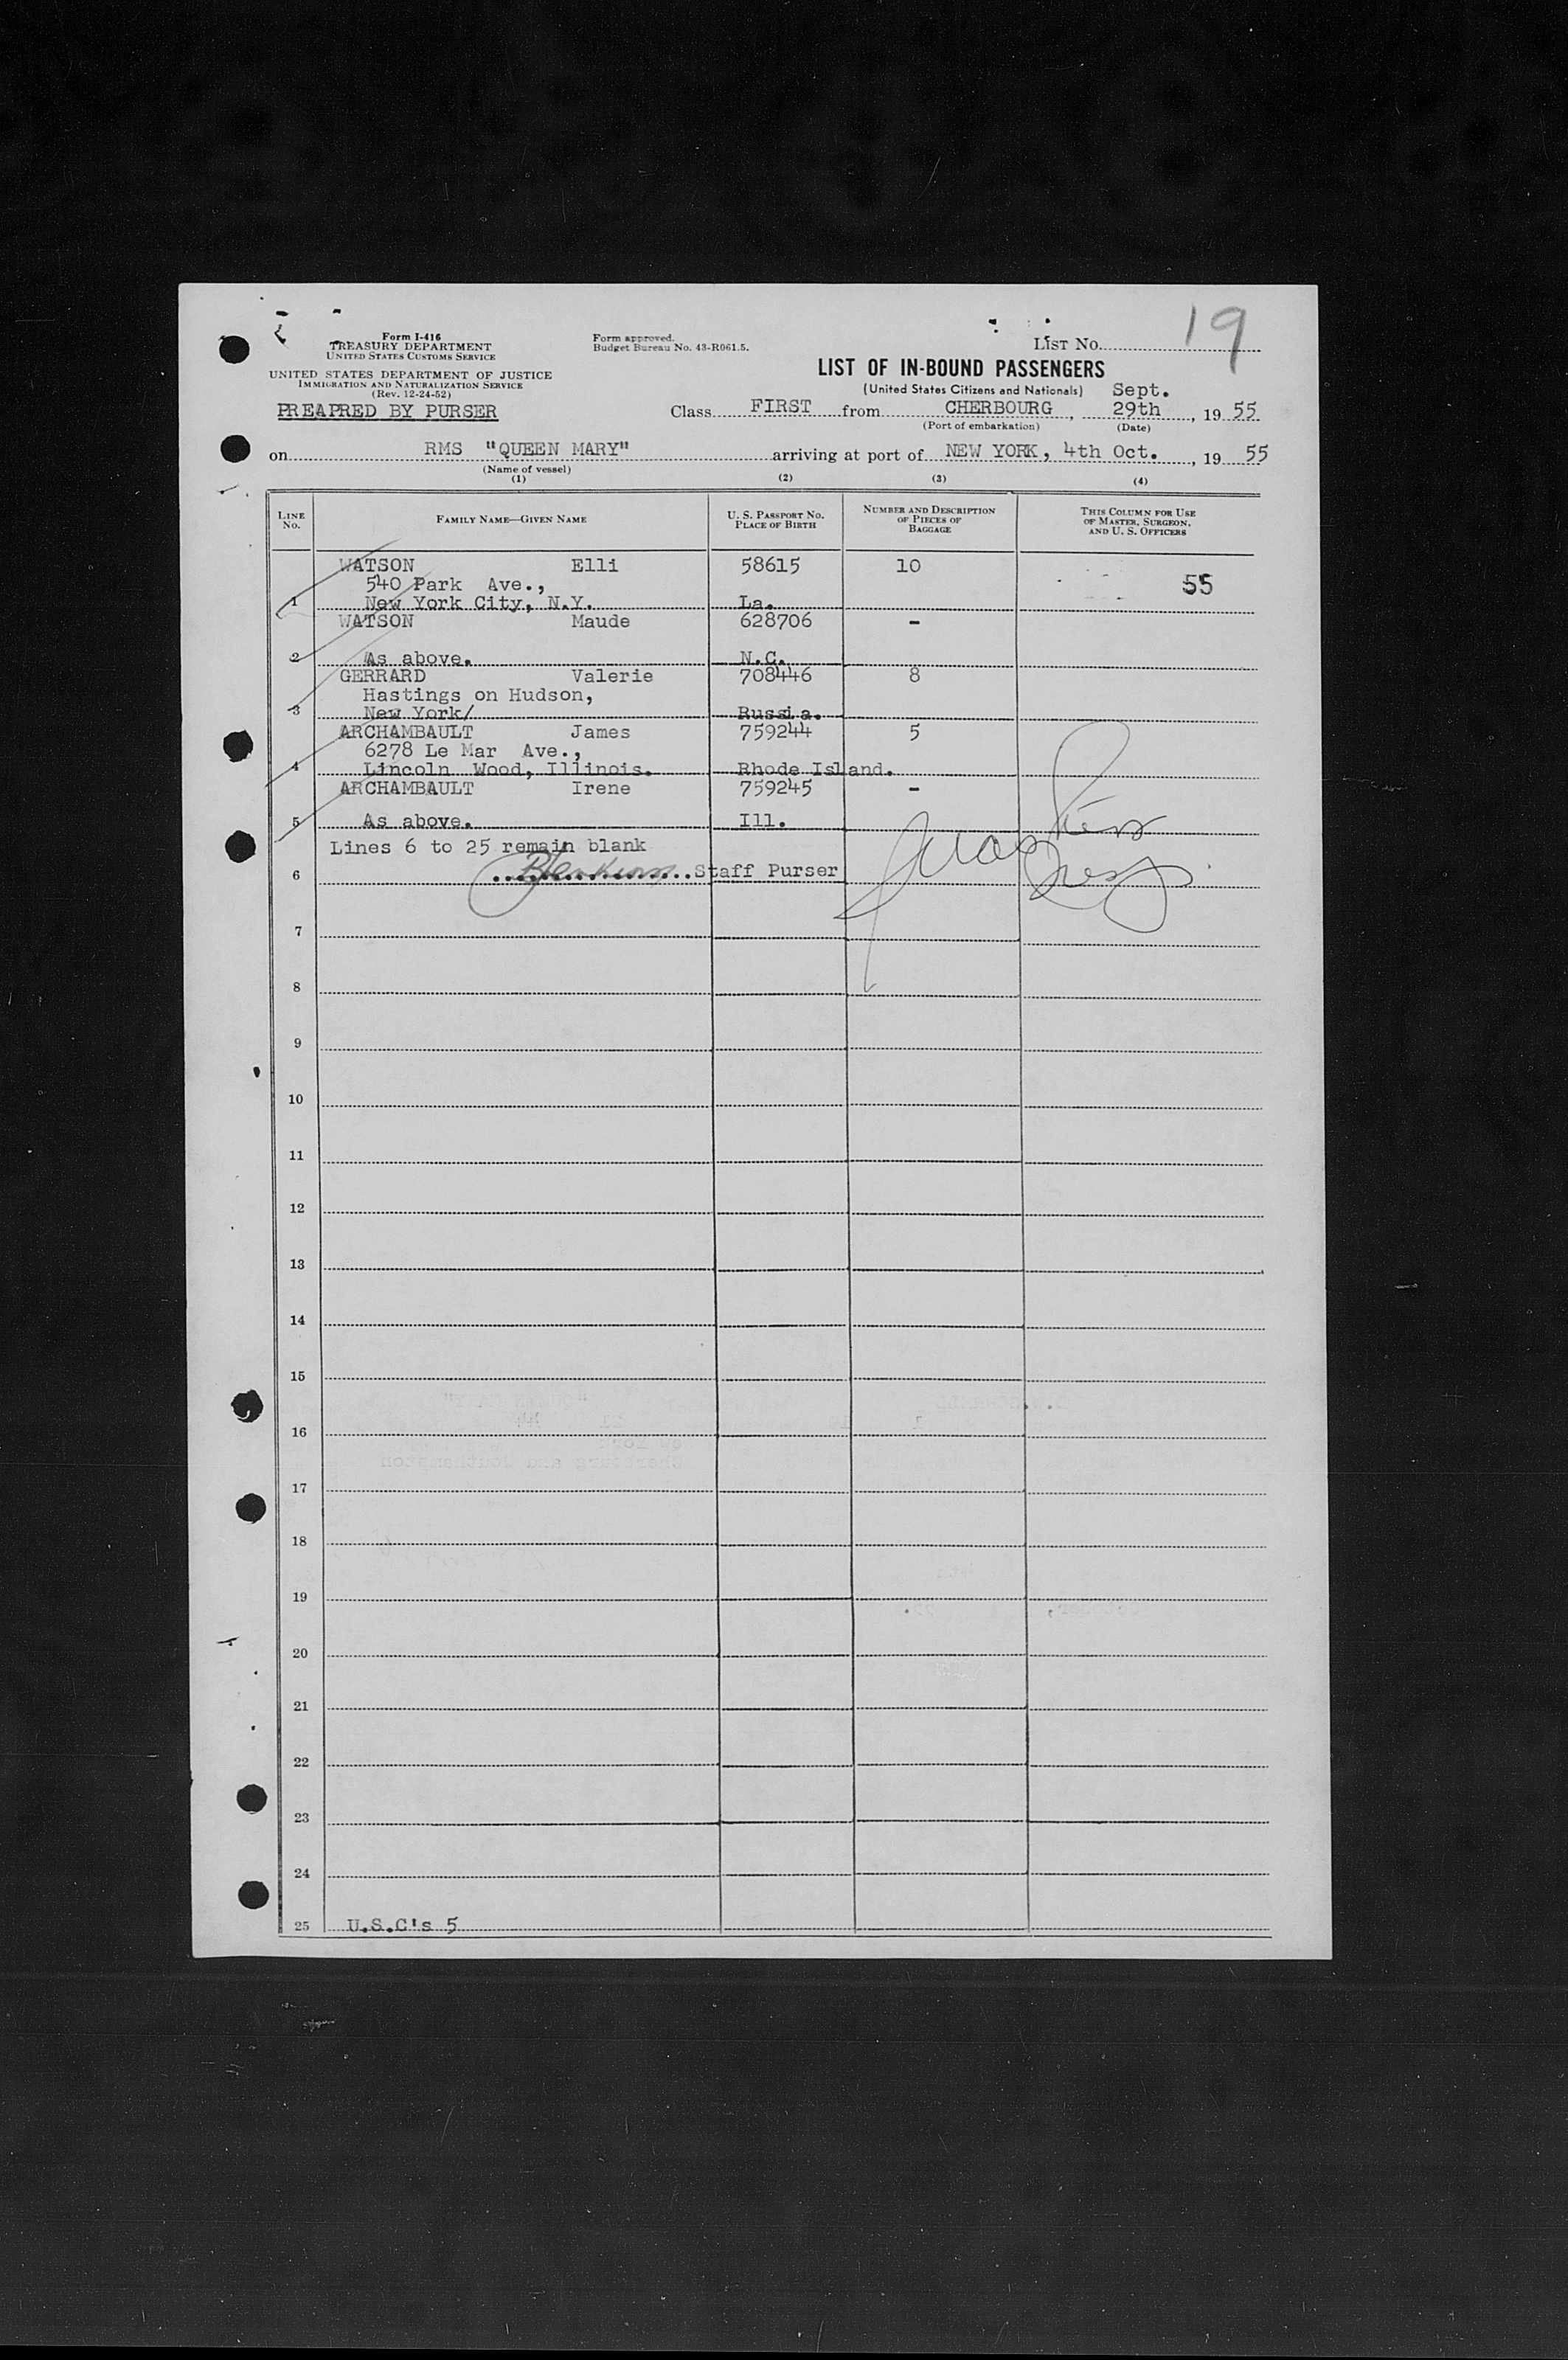 19
Form I-416
TREASURY DEPARTMENT
UNITED STATES CUSTOMS SERVICE
Form approved.
Budget Bureau No. 43-R061.5.
LIST No.
UNITED STATES DEPARTMENT OF JUSTICE
IMMIGRATION AND NATURALIZATION SERVICE
(Rev. 12-24-52)
LIST OF IN-BOUND PASSENGERS
(United States Citizens and Nationals)
PREAPRED BY PURSER
Class FIRST from CHERBOURG, Sept. 29th, 19 55
(Port of embarkation) (Date)
on RMS "QUEEN MARY" arriving at port of NEW YORK, 4th Oct., 19 55
(Name of vessel)
(1) (2) (3) (4)
LINE No. FAMILY NAME—GIVEN NAME U. S. PASSPORT NO. PLACE OF BIRTH NUMBER AND DESCRIPTION OF PIECES OF BAGGAGE THIS COLUMN FOR USE OF MASTER, SURGEON, AND U. S. OFFICERS
WATSON Elli 58615 10
540 Park Ave., 55
1 New York City, N.Y. La.
WATSON Maude 628706 -
2 As above. N.C.
GERRARD Valerie 708446 8
Hastings on Hudson,
3 New York/ Russia.
ARCHAMBAULT James 759244 5
6278 Le Mar Ave.,
4 Lincoln Wood, Illinois. Rhode Island.
ARCHAMBAULT Irene 759245 -
5 As above. Ill.
Lines 6 to 25 remain blank
6 Staff Purser
7
8
9
10
11
12
13
14
15
16
17
18
19
20
21
22
23
24
25 U.S.C's 5